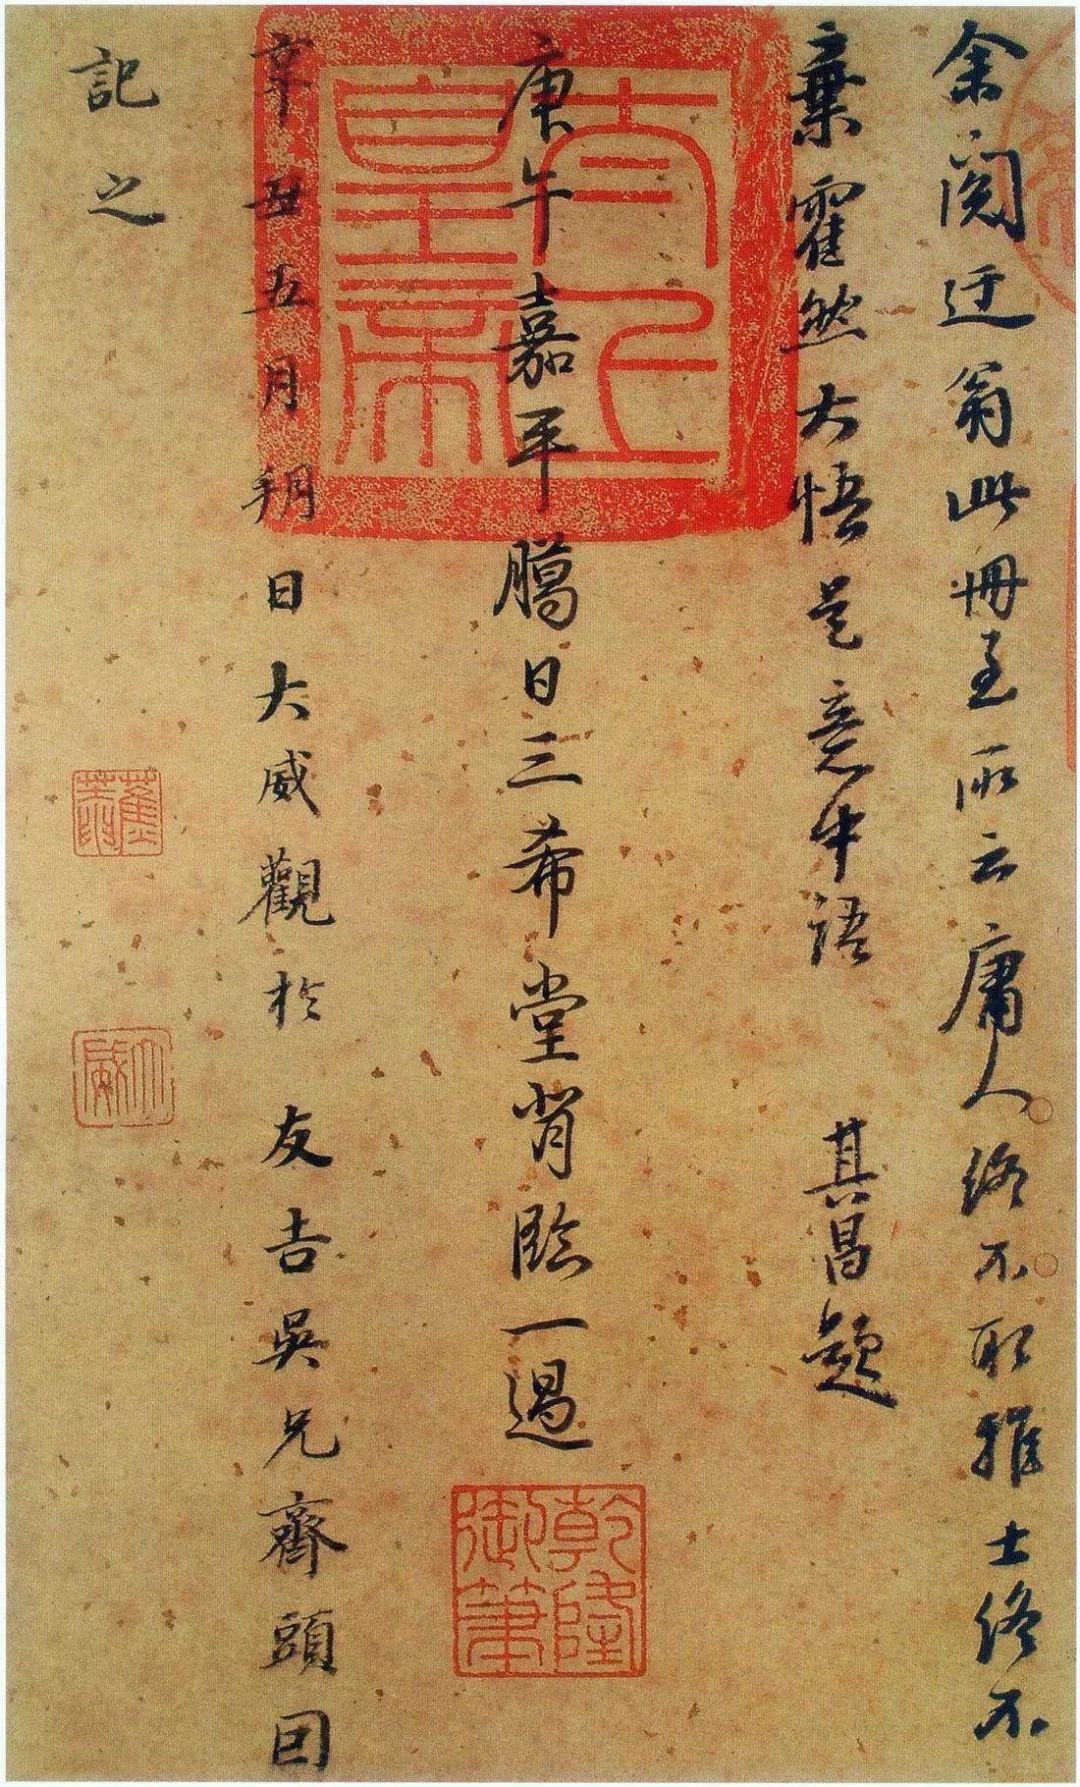 余閱迂翁此冊至所云庸人終不取雅士終不
棄霍然大悟是意中語 其昌題
庚午嘉平臈日三希堂背臨一過
辛丑五月朔日大威觀於 友吉吳兄齋頭因
記之
太上皇帝
乾隆御筆
大威